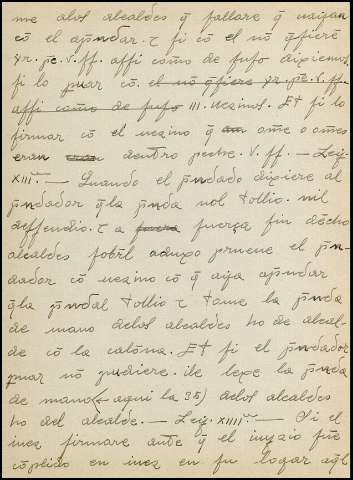 me alos alcaldes q̄ fallare q̄ uaian
cō el ap̄ndar. τ ſi cō el nō q̄ſiere
yr. pe. v. ſſ. aſſi como de ſuſo dixiemos
ſi lo puar cō. el nō q̄ſiere yr. pe. v. ſſ.
aſſi como de ſuſo III. uezinos. Et ſi lo
firmar cō el uezino q̄ ome o omes
eran dentro peche. v. ſſ. — Ley.
XIII. — Quando el p̄ndado dixiere al
p̄ndador q̄ la p̄nda nol tollio. nil
deffendio. τ a fuera fuerça ſin dicho
alcaldes ſobrel aduxo prueue el p̄n-
dador cō uezino cō q̄ aya ap̄ndar
q̄ la p̄ndal tollio τ tome la p̄nda
de mano delos alcaldes ho de alcal-
de cō la calōna. Et ſi el p̄ndador
puar nō pudiere. ile lexe la p̄nda
de mano (aqui la 35) delos alcaldes
ho del alcalde. — Ley. XIIII. — Si el
iuez firmare ante q̄ el iuyzio fue
cōplido en iuez en ſu logar aq̄l